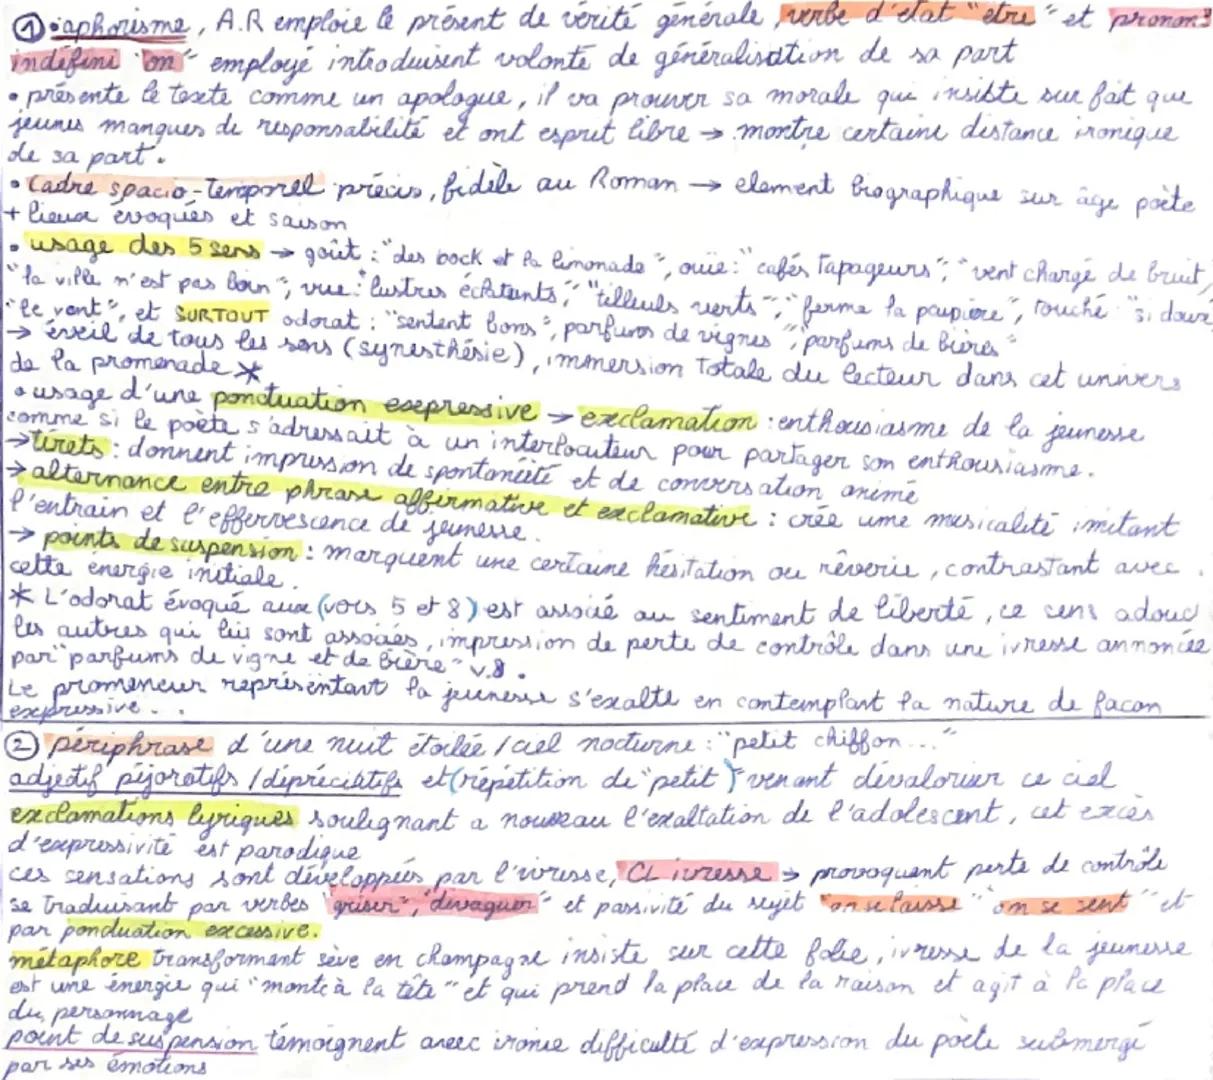 ① • aphorisme, A.R emploie le présent de vérité générale, verbe d'état "être" et pronom
indéfini "on" employé introduisent volonté de généralisation de sa part
• présente le texte comme un apologue, il va prouver sa morale qui insiste sur fait que
jeunes manques de responsabilité et ont esprit libre → montre certaine distance ironique
de sa part.
• Cadre spacio-temporel précis, fidèle au Roman → element biographique sur âge poète
+ lieux évoqués et saison
• usage des 5 sens → goût : "des bock et la limonade", ouïe : "cafés tapageurs", "vent chargé de bruit,
"la ville n'est pas loin", vue : "lustres éclatants", "tilleuls verts", "ferme la paupière", touché "si doux
"le vent", et SURTOUT odorat : "sentent bons", parfums de vignes", "parfums de bières"
→ éveil de tous les sens (synesthésie), immersion Totale du lecteur dans cet univers
de la promenade *
• usage d'une ponctuation expressive → exclamation : enthousiasme de la jeunesse
comme si le poète s'adressait à un interlocuteur pour partager son enthousiasme.
→ tirets : donnent impression de spontanéité et de conversation animé
→ alternance entre phrase affirmative et exclamative : crée une musicalité imitant
l'entrain et l'effervescence de jeunesse.
→ points de suspension : marquent une certaine hésitation ou rêverie, contrastant avec
cette énergie initiale.
* L'odorat évoqué aux (vers 5 et 8) est associé au sentiment de liberté, ce sens adoud
les autres qui lui sont associés, impression de perte de contrôle dans une ivresse annoncée
par "parfums de vigne et de bière" v.8.
Le promeneur représentant la jeunesse s'exalte en contemplant la nature de facon
expressive...
② périphrase d'une nuit étoilée / ciel nocturne : "petit chiffon..."
adjectif péjoratifs / dépréciatifs et (répétition de "petit") venant dévaloriser ce ciel
exclamations lyriques soulignant a nouveau l'exaltation de l'adolescent, cet excès
d'expressivité est parodique
ces sensations sont développées par l'ivresse, CL ivresse → provoquent perte de contrôle
se traduisant par verbes "griser", "divaguer" et passivité du sujet "on se laisse" "on se sent" et
par ponctuation excessive.
métaphore transformant sève en champagne insiste sur cette folie, ivresse de la jeunesse
est une énergie qui "monte à la tête" et qui prend la place de la raison et agit à la place
du personnage
point de suspension témoignent avec ironie difficulté d'expression du poète submergé
par ses émotions